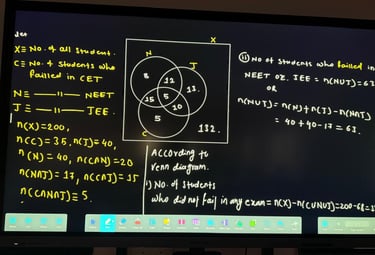 Let
X ≡ No. of all student.
C ≡ No. of students who
failled in CET
N ≡ —— 11 —— NEET
J ≡ —— 11 —— JEE.
n(X) = 200,
n(C) = 35, n(J) = 40,
n(N) = 40, n(C∩N) = 20
n(N∩J) = 17, n(C∩J) = 15
n(C∩N∩J) = 5.
X
N
J
8
12
13.
15
5
10
5
C
132.
According to
venn diagram.
i) No. of students
who did not fail in any exam = n(X) - n(C∪N∪J) = 200 - 68 =
ii) No of students who failled in
NEET or JEE = n(N∪J) = 63
OR
n(N∪J) = n(N) + n(J) - n(N∩J)
= 40 + 40 - 17 = 63.